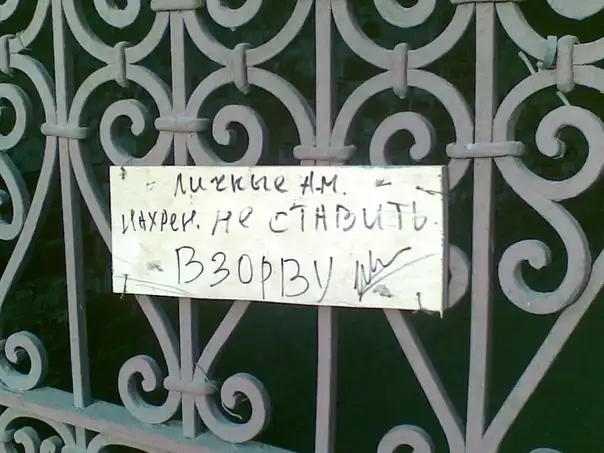 личные А.М.
НАХРЕН. НЕ СТАВИТЬ.
ВЗОРВУ